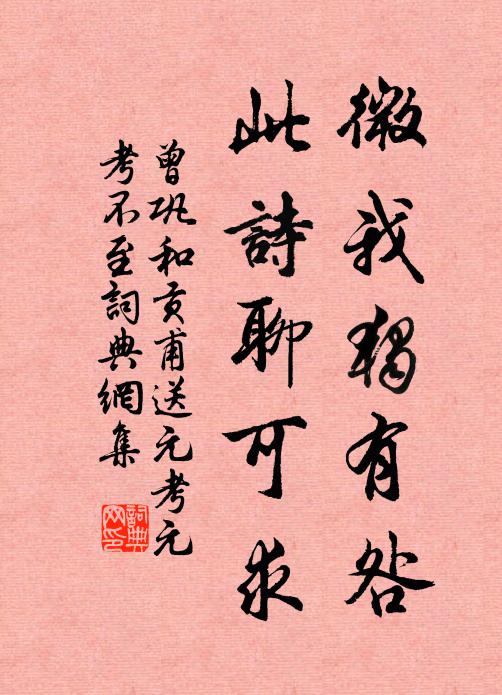 微我獨有咎
此詩聊可求
曾巩和贡甫送元考元
考不至詞典網集
詞典
网印